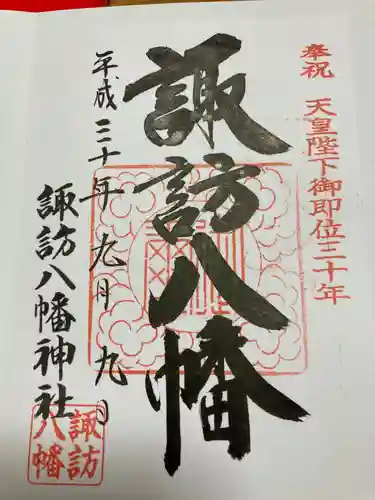 奉祝 天皇陛下御即位三十年
諏訪八幡
平成三十年九月九日
諏訪八幡神社
諏訪
八幡